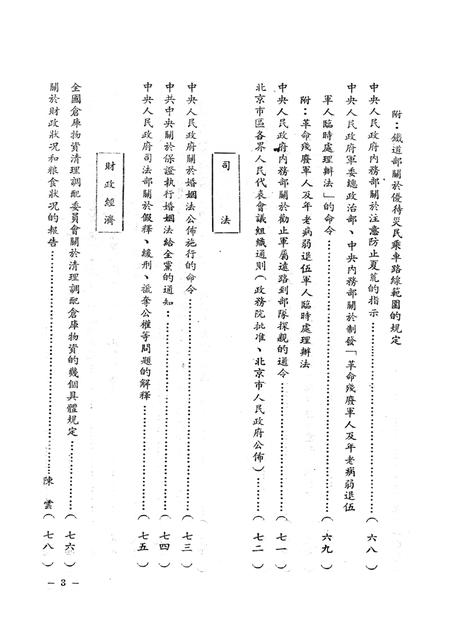 附：鐵道部關於優待災民乘車路線範圍的規定
中央人民政府內務部關於注意防止夏荒的指示………………（六八）
中央人民政府軍委總政治部、中央內務部關於制發「革命殘廢軍人及年老病弱退伍
軍人臨時處理辦法」的命令………………（六九）
附：革命殘廢軍人及年老病弱退伍軍人臨時處理辦法
中央人民政府內務部關於勸止軍屬遠路到部隊探親的通令………………（七一）
北京市區各界人民代表會議組織通則（政務院批准、北京市人民政府公佈）………（七二）
司法
中央人民政府關於婚姻法公佈施行的命令………………（七三）
中共中央關於保證執行婚姻法給全黨的通知………………（七四）
中央人民政府司法部關於假釋、緩刑、褫奪公權等問題的解釋………………（七五）
財政經濟
全國倉庫物資清理調配委員會關於清理調配倉庫物資的幾個具體規定………（七六）
關於財政狀況和糧食狀況的報告………………陳雲（七八）
— 3 —